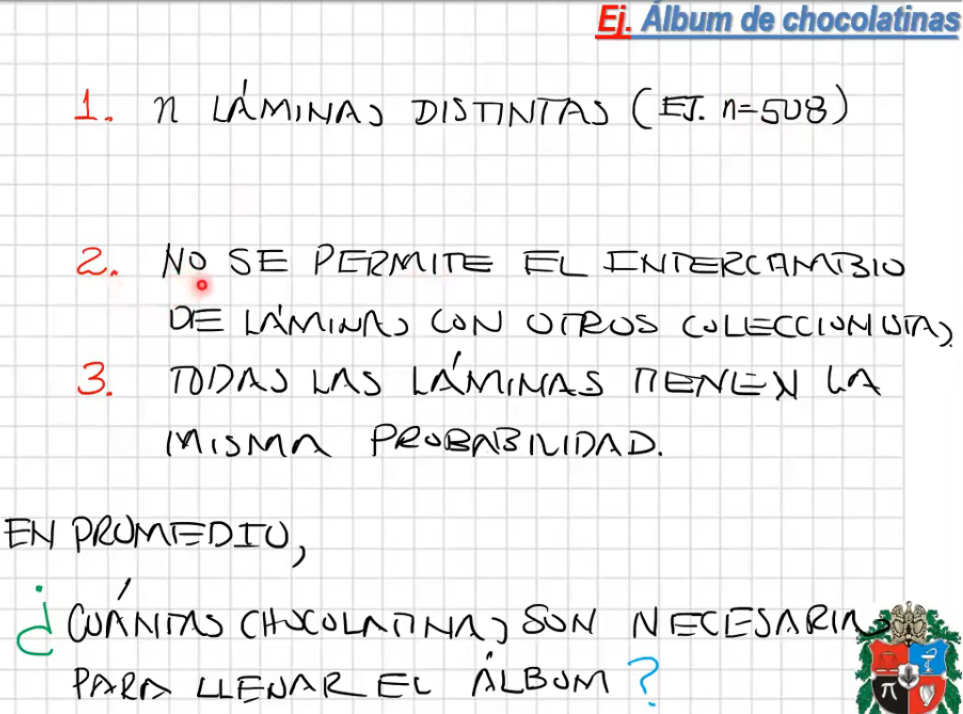 Ej. Álbum de chocolatinas
1. n LÁMINAS DISTINTAS (EJ. n=508)
2. NO SE PERMITE EL INTERCAMBIO
DE LÁMINAS CON OTROS COLECCIONISTAS
3. TODAS LAS LÁMINAS TIENEN LA
MISMA PROBABILIDAD.
EN PROMEDIO,
¿CUÁNTAS CHOCOLATINAS SON NECESARIAS
PARA LLENAR EL ÁLBUM?
π